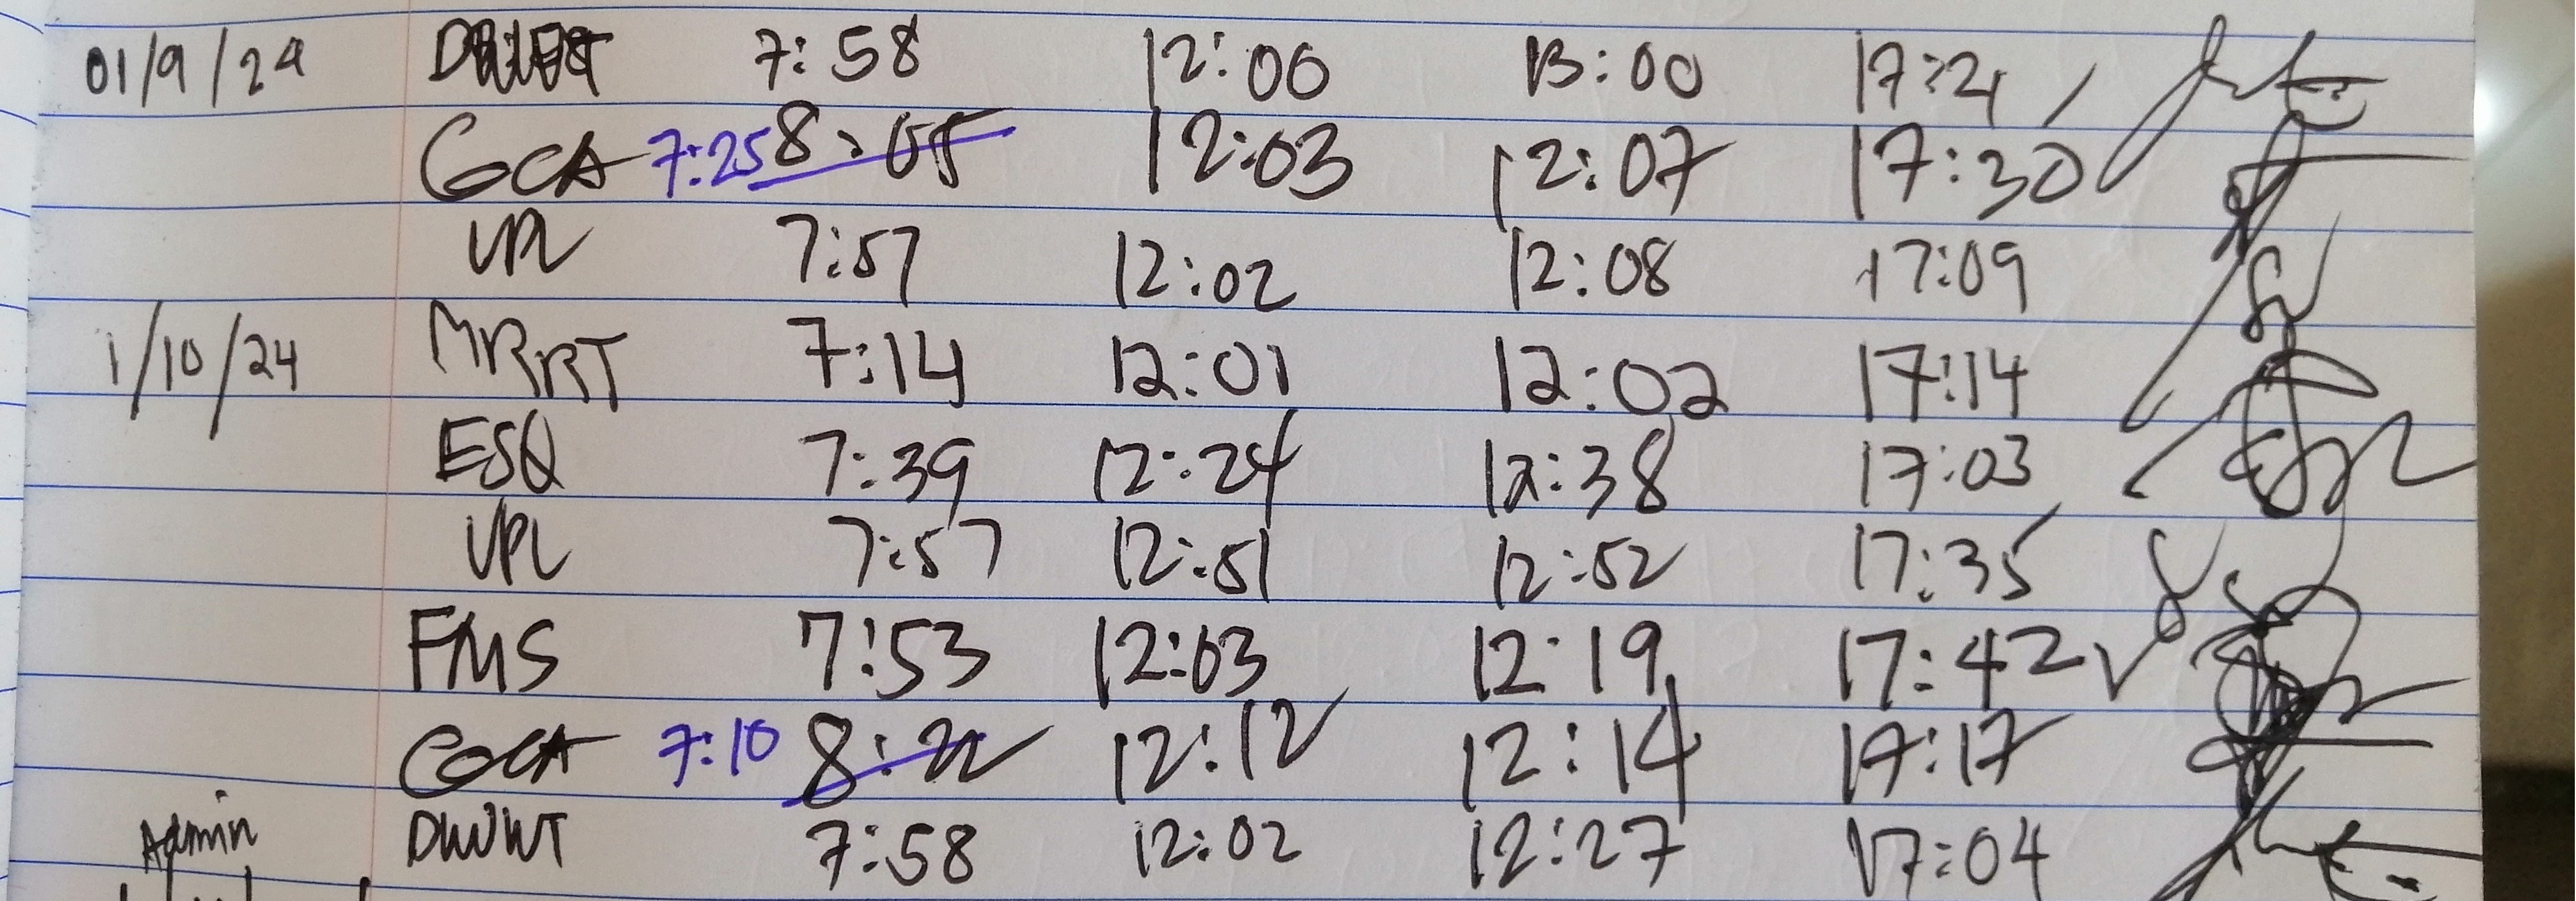 01/9/24 7:58 12:00 13:00 17:21
GCA 7:25 8:05 12:03 12:07 17:30
VPL 7:57 12:02 12:08 17:09
1/10/24 MRRT 7:14 12:01 12:02 17:14
ESQ 7:39 12:24 12:38 17:03
VPL 7:57 12:51 12:52 17:35
FMS 7:53 12:03 12:19 17:42
GCA 7:10 8:22 12:12 12:14 17:17
Admin DWWT 7:58 12:02 12:27 17:04